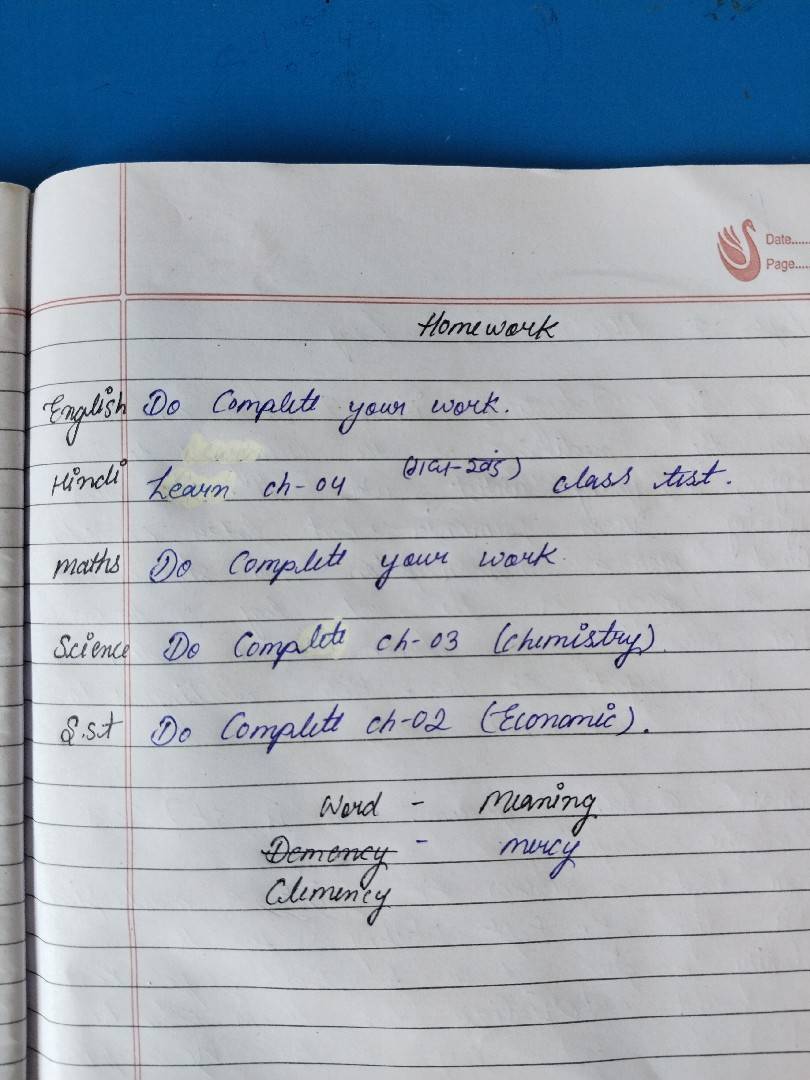 Date.....
Page.....
Homework
English Do Complete your work.
Hindi Learn ch-04 class test.
Maths Do Complete your work.
Science Do Complete ch-03 (Chemistry)
S.st Do Complete ch-02 (Economic).
Word - Meaning
Demency - mercy
Clemency